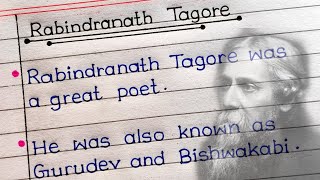 Rabindranath Tagore
Rabindranath Tagore was
a great poet.
He was also known as
Gurudev and Bishwakabi.